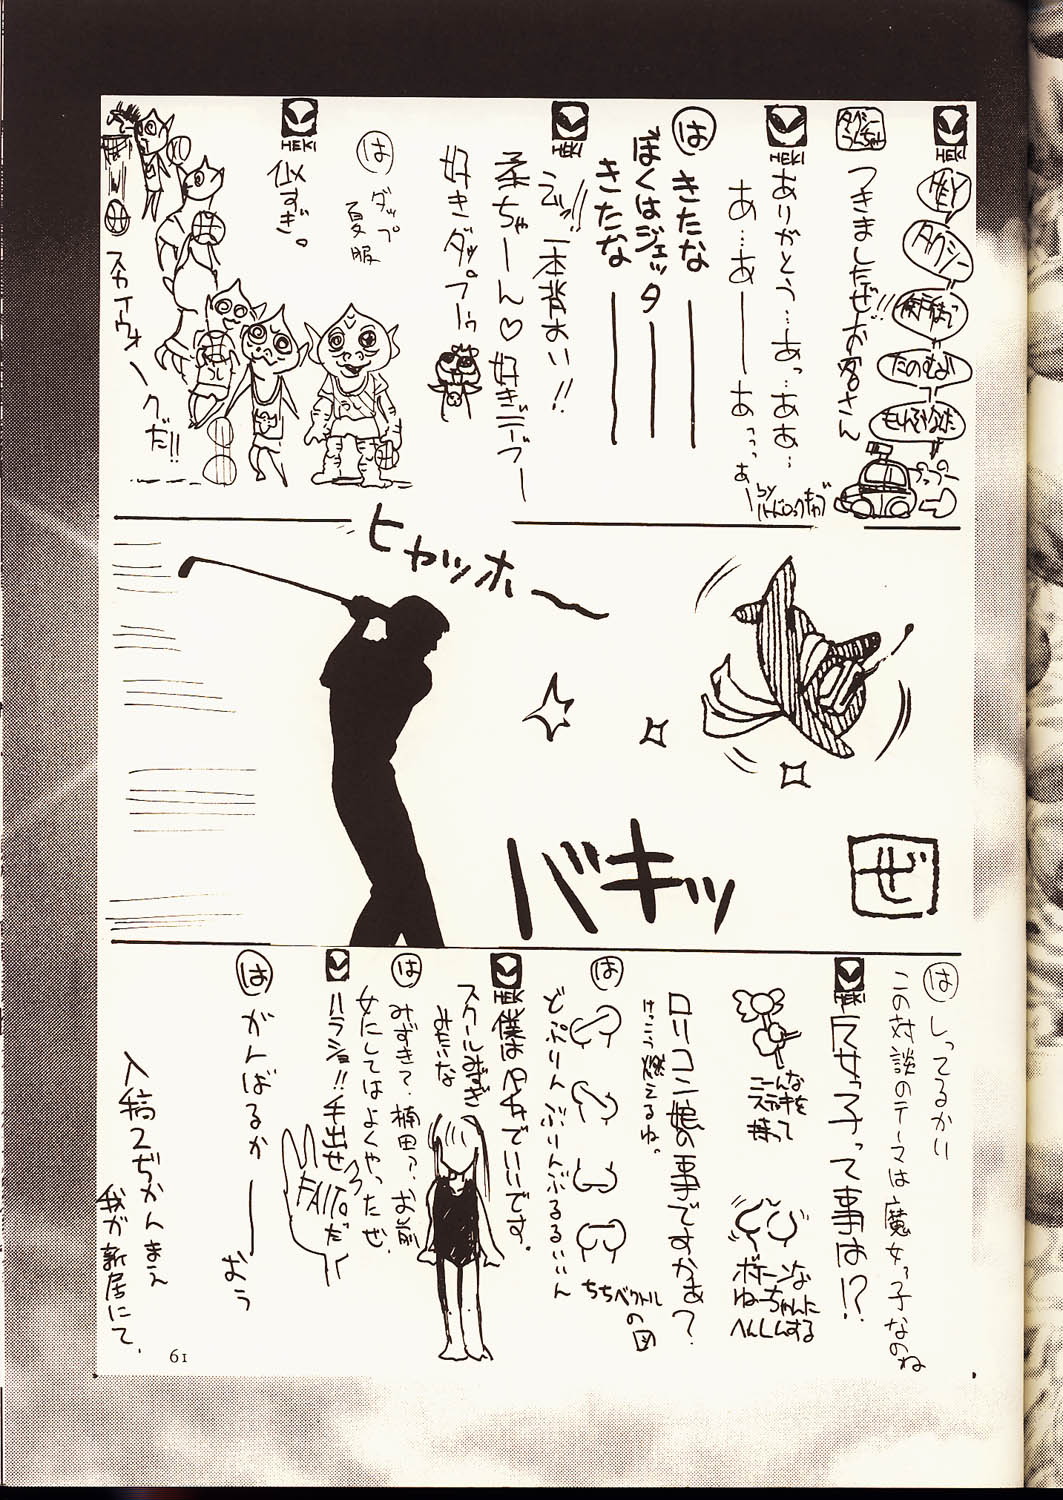 HEKI
HEY
タクシー
たのむよ
つきましたぜお客さん!!
HEKI
ありがとう…あっ…ああ…
あ…あ――あっっっぁ
by ハードロックキャブ
は
きたな――
ぼくはジェッター――
きたな――
HEKI
えいっ!!一本背おい!!
柔ちゃーん♡好きデブー
好きダップーっ
は
ダップ
夏服
HEKI
似すぎ。
スカイウォークだ!!
ヒャッホ〜
バキッ
ぜ
は
しってるかい
この対談のテーマは魔女っ子なのね
HEKI
魔女っ子って事は!?
こんな
ステッキを
持って
ボボーンな
ねーちゃんに
へんしんする
ロリコン娘の事ですかぁ?
けっこう燃えるね。
は
どぷりんぶりんぶるるいいん
ちちベクトル
の図
HEKI
僕はペチャでいいです。
スクールみずぎ
みたいな
は
みずき?楠田?お前
女にしてはよくやったぜ
ハラショ!!手出せ
FAITOだ
は
がんばるか――おう
入稿2ぢかんまえ
我が新居にて、
61